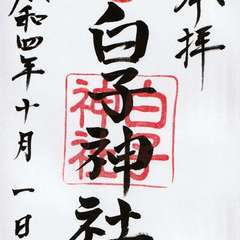 奉拝
白子神社
白子神社
令和四年十月一日